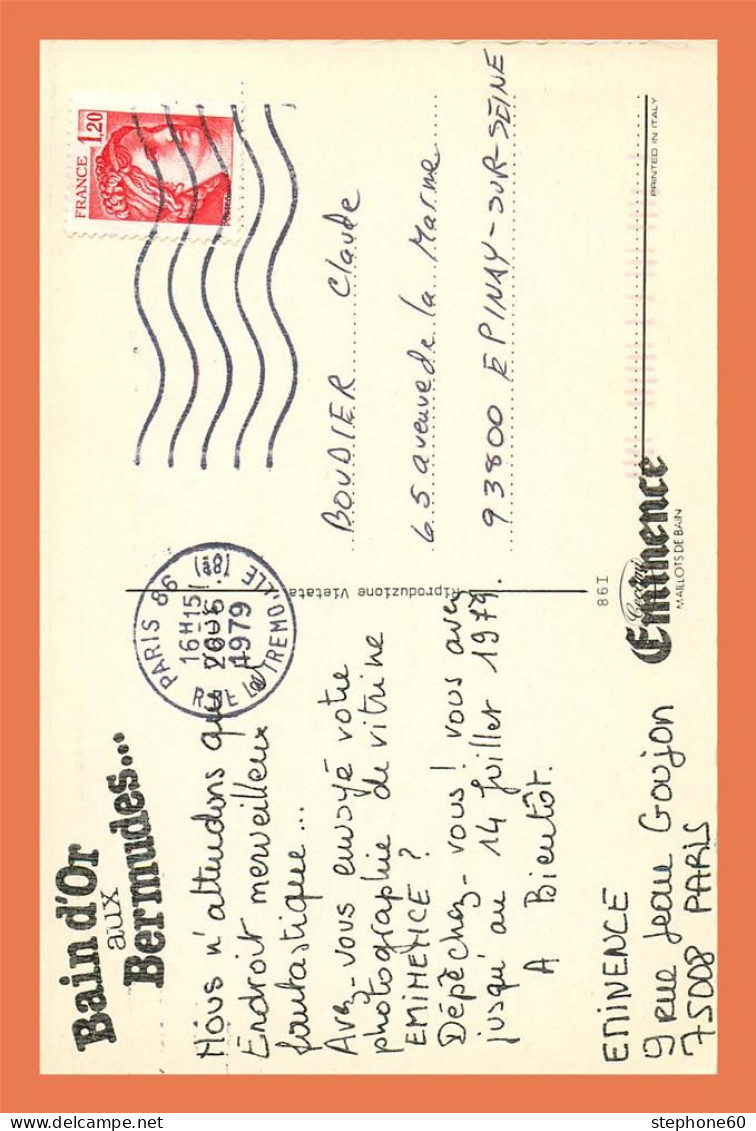 Bain d'Or
aux
Bermudes...
Nous n'attendons que vous
Endroit merveilleux et
fantastique...
Avez-vous envoyé votre
photographie de vitrine
EMINENCE ?
Dépêchez-vous ! vous avez
jusqu'au 14 Juillet 1979.
A Bientôt.
EMINENCE
9 rue Jean Goujon
75008 PARIS
Riproduzione Vietata
PARIS 86 (8E)
16H15
1979
RUE LA TREMOILLE
FRANCE 1,20
BOUDIER Claude
65 avenue de la Marne
93800 EPINAY-SUR-SEINE
86I
Eminence
MAILLOTS DE BAIN
PRINTED IN ITALY
stephone60